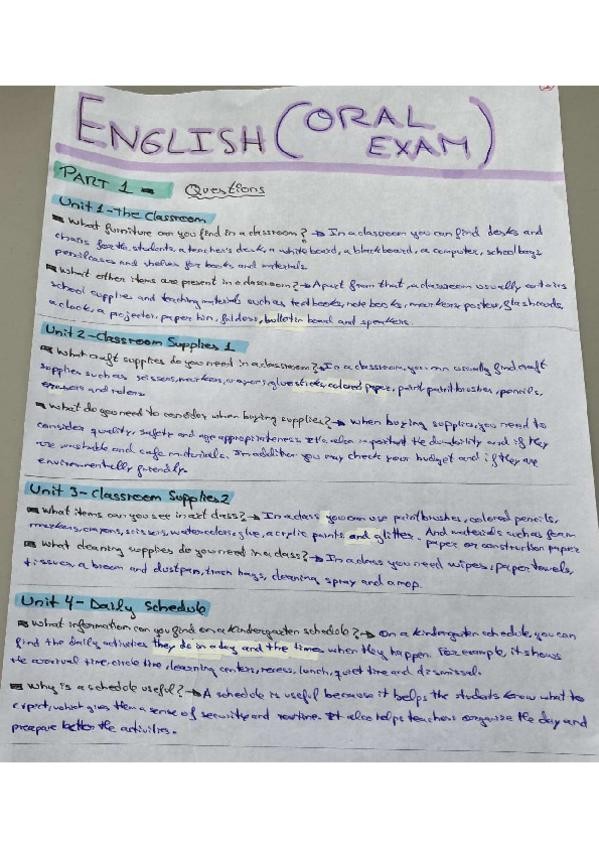 ENGLISH (ORAL EXAM)
PART 1 - Questions
Unit 1-The Classroom
What furniture can you find in a classroom? → In a classroom you can find desks and
chairs for the students, a teacher's desk, a whiteboard, a blackboard, a computer, school bags
pencilcases and shelves for books and materials
What other items are present in a classroom? → Apart from that, a classroom usually contains
school supplies and teaching materials such as textbooks, notebooks, markers, posters, flashcards,
a clock, a projector, paper bin, folders, bulletin board and speakers.
Unit 2-Classroom Supplies 1
What craft supplies do you need in a classroom? → In a classroom, you can usually find craft
supplies such as scissors, markers, crayons, glue sticks, colored paper, paint paintbrushes, pencils,
erasers and rulers
What do you need to consider when buying supplies? → When buying supplies, you need to
consider quality, safety and age appropriateness. It's also important the durability and if they
are washable and safe materials. In addition you may check your budget and if they are
environmentally friendly.
Unit 3-Classroom Supplies 2
What items can you see in art class? → In a class you can use paintbrushes, colored pencils,
markers, crayons, scissors, watercolors, glue, acrylic paints and glitter. And materials such as foam
paper or construction paper
What cleaning supplies do you need in a class? → In a class you need wipes, paper towels,
tissues, a broom and dustpan, trash bags, cleaning spray and a mop.
Unit 4-Daily Schedule
What information can you find on a kindergarten schedule? → On a kindergarten schedule, you can
find the daily activities they do in a day and the times when they happen. For example, it shows
the arrival time, circle time, learning centers, recess, lunch, quiet time and dismissal.
Why is a schedule useful? → A schedule is useful because it helps the students know what to
expect, which gives them a sense of security and routine. It also helps teachers organize the day and
preapare better the activities.